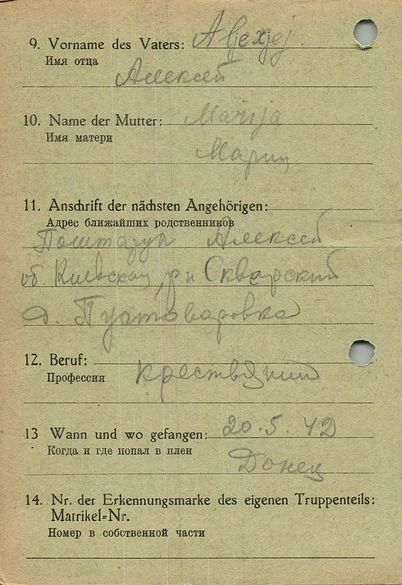 9. Vorname des Vaters: Aljexjej.
Имя отца
Алексей
10. Name der Mutter: Marija
Имя матери
Мария
11. Anschrift der nächsten Angehörigen:
Адрес ближайших родственников
Алексей
об. Киевская, р-н Скверский
д. Пустоваровка
12. Beruf:
Профессия крестьянин
13 Wann und wo gefangen: 20.5.42
Когда и где попал в плен
Донец
14. Nr. der Erkennungsmarke des eigenen Truppenteils:
Matrikel-Nr.
Номер в собственной части